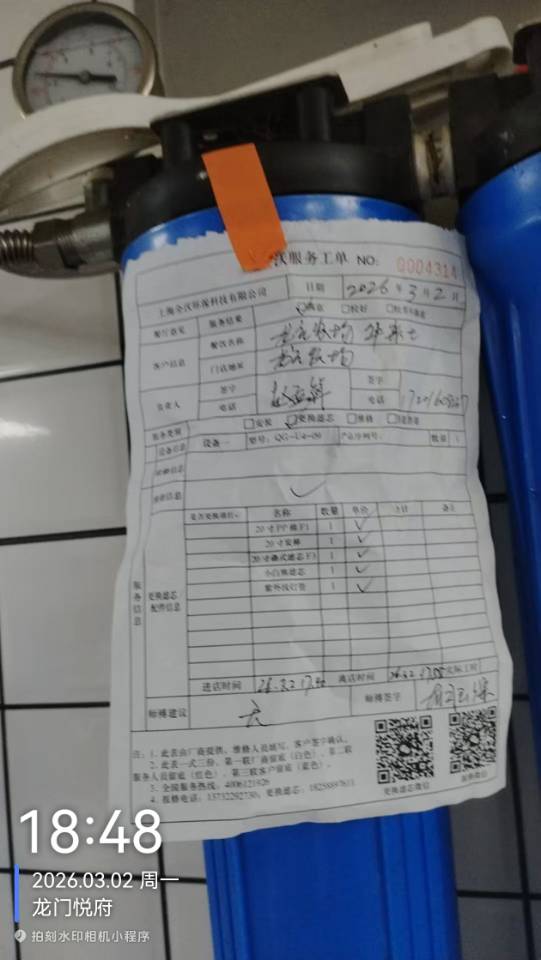 沃服务工单 NO: 0004314
上海全沃环保科技有限公司 日期 2026年3月2日
餐厅意见 服务结果 满意 □较好
客户信息 餐饮名称
门店地址
负责人 签字 签字
电话 电话
服务类别 □安装 更换滤芯 □维修
设备信息 设备一 型号: QG-U4-09 产品序列号: 数量 1
服务信息
更换滤芯/配件信息
名称 数量 单价 合计 备注
20寸PP棉 1 ✓
20寸炭棒 1 ✓
1 ✓
1 ✓
紫外线灯管 1 ✓
进店时间 离店时间 实际工时
师傅建议 无 师傅签字
注: 1. 此表由厂商提供, 维修人员填写, 客户签字确认。
2. 此表一式三份, 第一联厂商留底(白色), 第二联
服务人员留底(红色), 第三联客户留底(蓝色)。
3. 全国服务热线: 4006121926
4. 报修电话: 13732292730, 更换滤芯: 18258897611
更换滤芯微信 报修微信
18:48
2026.03.02 周一
龙门悦府
拍刻水印相机小程序